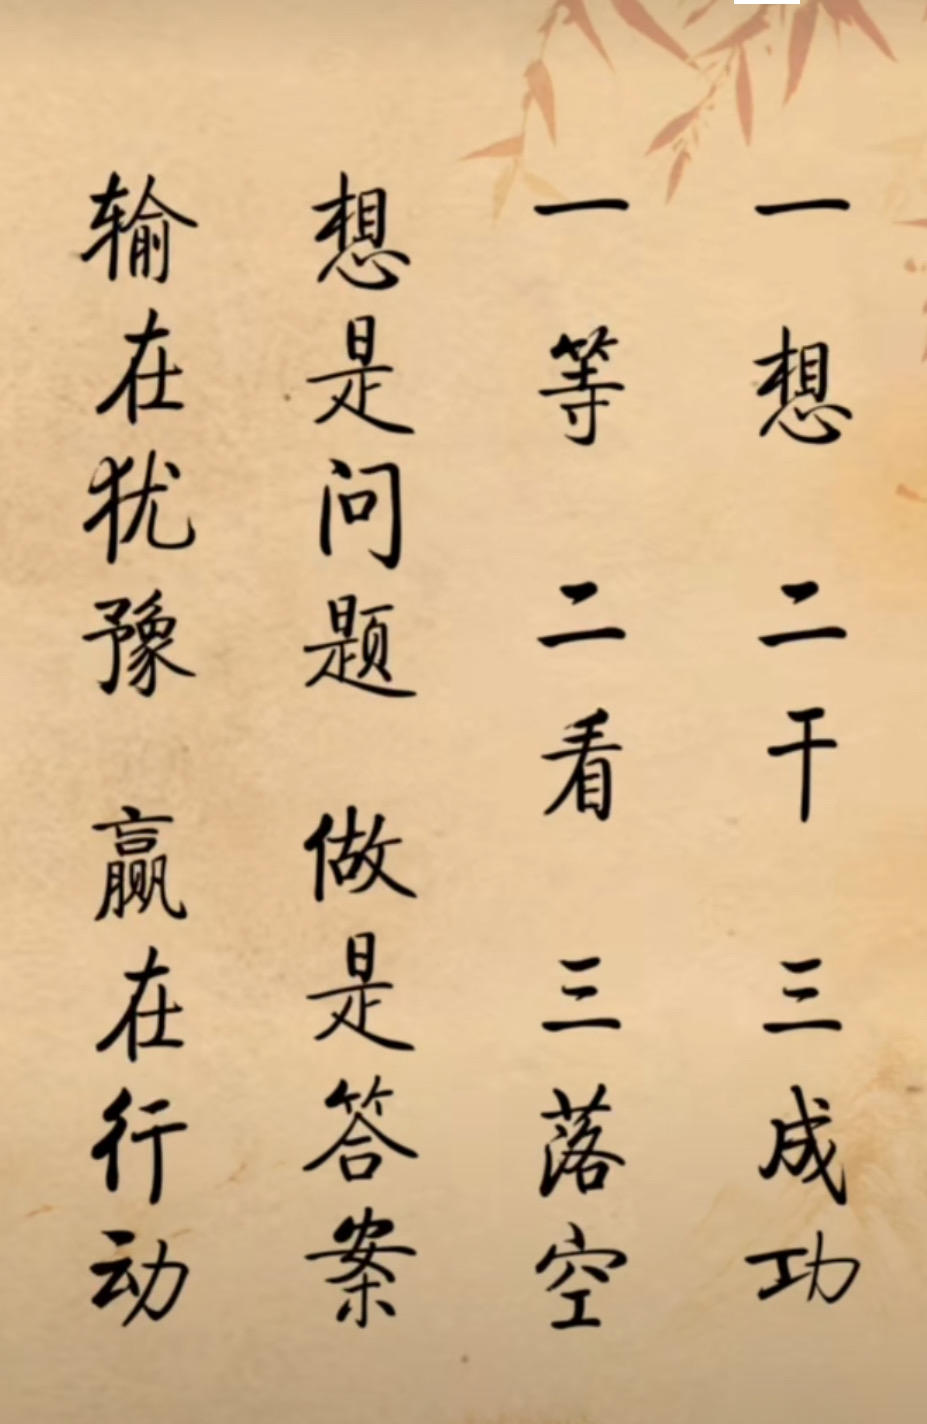 一想二干三成功
一等二看三落空
想是问题 做是答案
输在犹豫 赢在行动